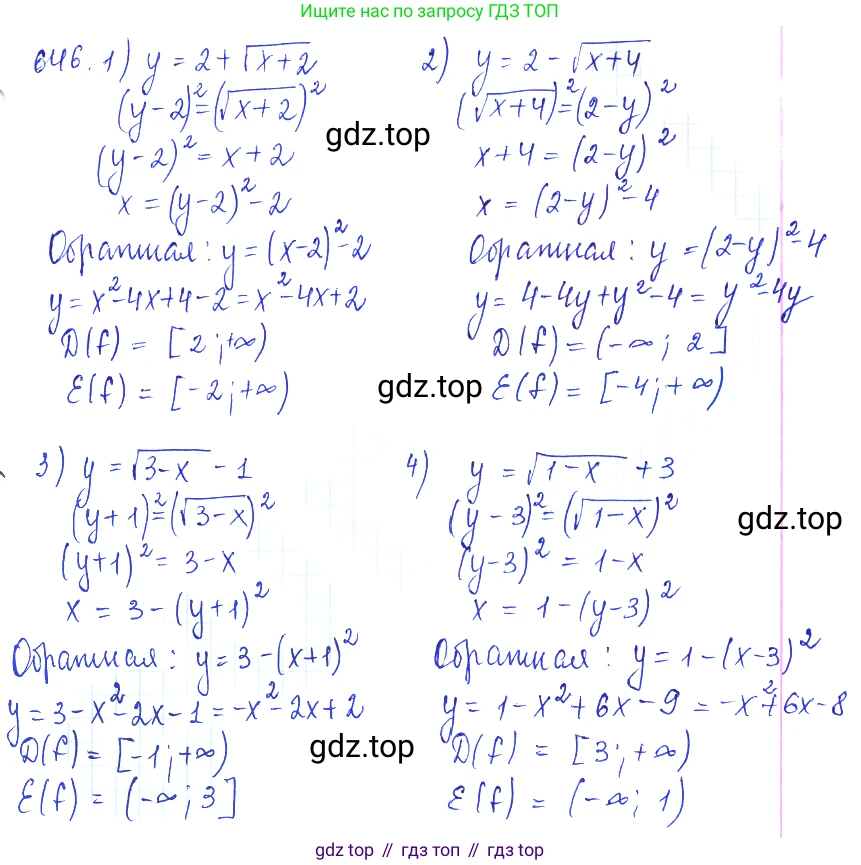 Ищите нас по запросу ГДЗ ТОП
646. 1) y = 2 + √(x+2)
(y-2)² = (√(x+2))²
(y-2)² = x+2
x = (y-2)² - 2
Обратная: y = (x-2)² - 2
y = x² - 4x + 4 - 2 = x² - 4x + 2
D(f) = [2; +∞)
E(f) = [-2; +∞)
2) y = 2 - √(x+4)
(√(x+4))² = (2-y)²
x+4 = (2-y)²
x = (2-y)² - 4
Обратная: y = (2-y)² - 4
y = 4 - 4y + y² - 4 = y² - 4y
D(f) = (-∞; 2]
E(f) = [-4; +∞)
3) y = √(3-x) - 1
(y+1)² = (√(3-x))²
(y+1)² = 3-x
x = 3 - (y+1)²
Обратная: y = 3 - (x+1)²
y = 3 - x² - 2x - 1 = -x² - 2x + 2
D(f) = [-1; +∞)
E(f) = (-∞; 3]
4) y = √(1-x) + 3
(y-3)² = (√(1-x))²
(y-3)² = 1-x
x = 1 - (y-3)²
Обратная: y = 1 - (x-3)²
y = 1 - x² + 6x - 9 = -x² + 6x - 8
D(f) = [3; +∞)
E(f) = (-∞; 1)
gdz.top
gdz.top
gdz.top
gdz.top
gdz top // гдз топ // gdz top